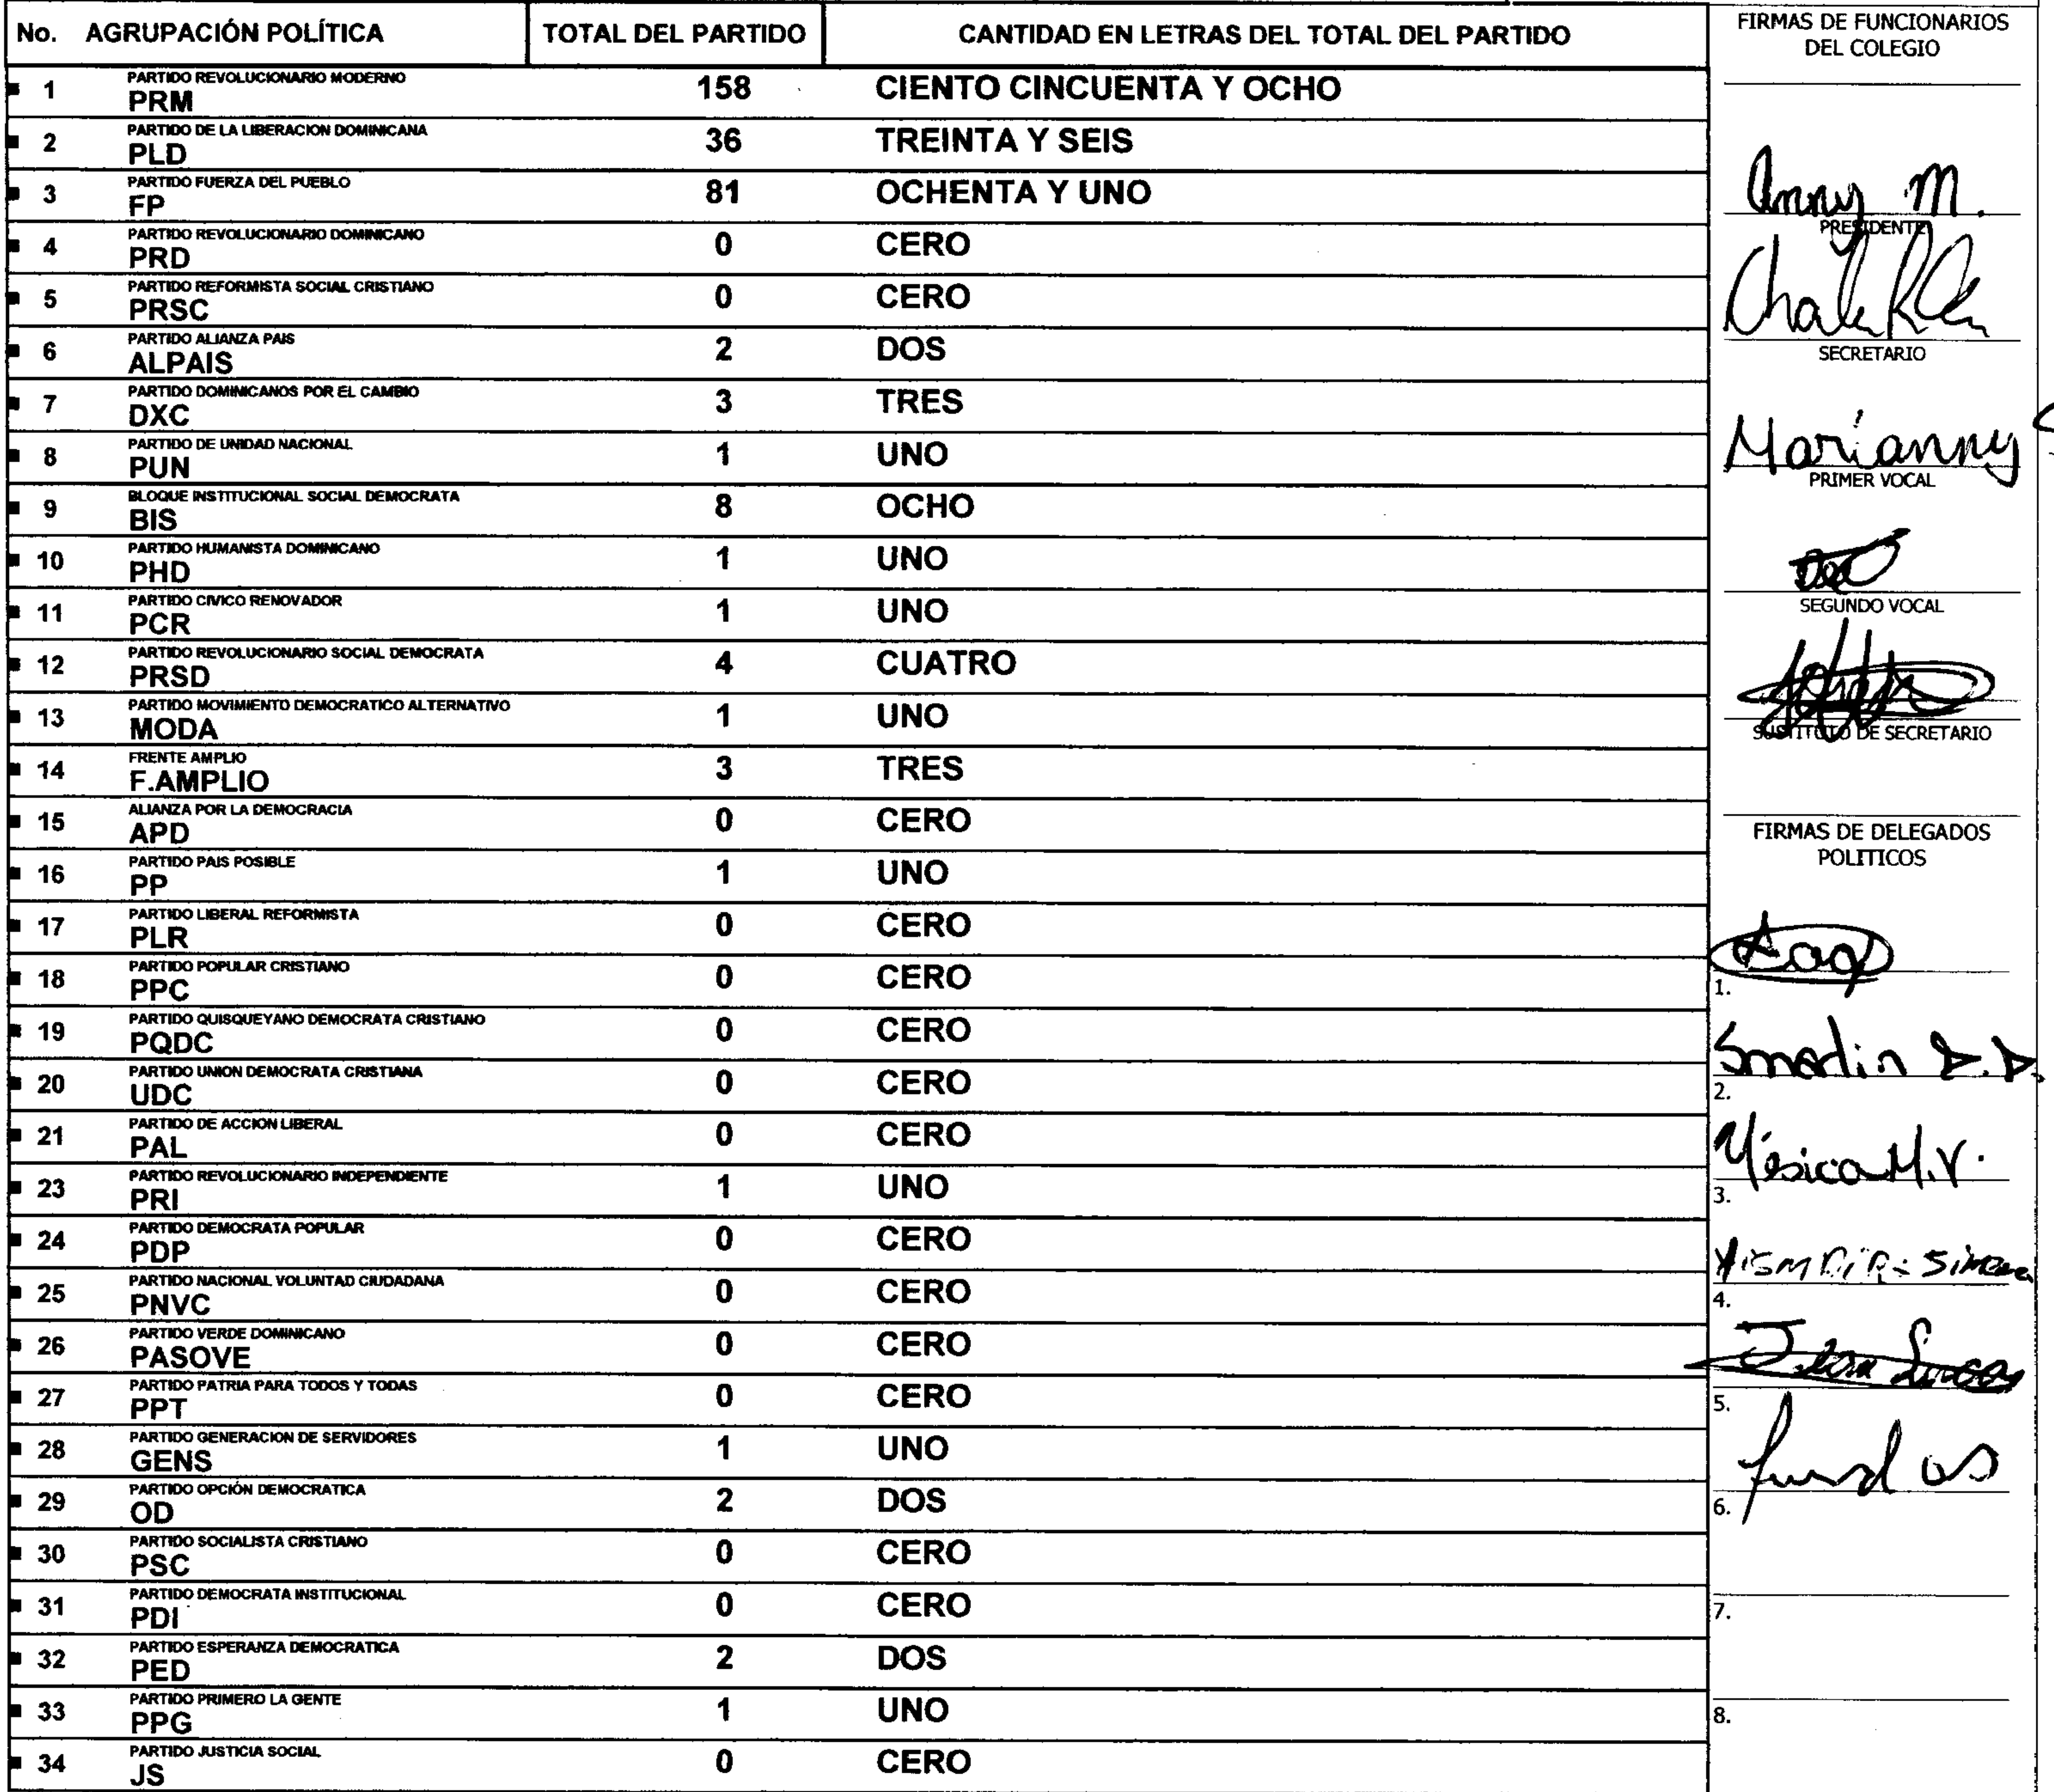 No. AGRUPACIÓN POLÍTICA TOTAL DEL PARTIDO CANTIDAD EN LETRAS DEL TOTAL DEL PARTIDO
1 PARTIDO REVOLUCIONARIO MODERNO
PRM 158 CIENTO CINCUENTA Y OCHO
2 PARTIDO DE LA LIBERACION DOMINICANA
PLD 36 TREINTA Y SEIS
3 PARTIDO FUERZA DEL PUEBLO
FP 81 OCHENTA Y UNO
4 PARTIDO REVOLUCIONARIO DOMINICANO
PRD 0 CERO
5 PARTIDO REFORMISTA SOCIAL CRISTIANO
PRSC 0 CERO
6 PARTIDO ALIANZA PAIS
ALPAIS 2 DOS
7 PARTIDO DOMINICANOS POR EL CAMBIO
DXC 3 TRES
8 PARTIDO DE UNIDAD NACIONAL
PUN 1 UNO
9 BLOQUE INSTITUCIONAL SOCIAL DEMOCRATA
BIS 8 OCHO
10 PARTIDO HUMANISTA DOMINICANO
PHD 1 UNO
11 PARTIDO CIVICO RENOVADOR
PCR 1 UNO
12 PARTIDO REVOLUCIONARIO SOCIAL DEMOCRATA
PRSD 4 CUATRO
13 PARTIDO MOVIMIENTO DEMOCRATICO ALTERNATIVO
MODA 1 UNO
14 FRENTE AMPLIO
F.AMPLIO 3 TRES
15 ALIANZA POR LA DEMOCRACIA
APD 0 CERO
16 PARTIDO PAIS POSIBLE
PP 1 UNO
17 PARTIDO LIBERAL REFORMISTA
PLR 0 CERO
18 PARTIDO POPULAR CRISTIANO
PPC 0 CERO
19 PARTIDO QUISQUEYANO DEMOCRATA CRISTIANO
PQDC 0 CERO
20 PARTIDO UNION DEMOCRATA CRISTIANA
UDC 0 CERO
21 PARTIDO DE ACCION LIBERAL
PAL 0 CERO
23 PARTIDO REVOLUCIONARIO INDEPENDIENTE
PRI 1 UNO
24 PARTIDO DEMOCRATA POPULAR
PDP 0 CERO
25 PARTIDO NACIONAL VOLUNTAD CIUDADANA
PNVC 0 CERO
26 PARTIDO VERDE DOMINICANO
PASOVE 0 CERO
27 PARTIDO PATRIA PARA TODOS Y TODAS
PPT 0 CERO
28 PARTIDO GENERACION DE SERVIDORES
GENS 1 UNO
29 PARTIDO OPCIÓN DEMOCRATICA
OD 2 DOS
30 PARTIDO SOCIALISTA CRISTIANO
PSC 0 CERO
31 PARTIDO DEMOCRATA INSTITUCIONAL
PDI 0 CERO
32 PARTIDO ESPERANZA DEMOCRATICA
PED 2 DOS
33 PARTIDO PRIMERO LA GENTE
PPG 1 UNO
34 PARTIDO JUSTICIA SOCIAL
JS 0 CERO
FIRMAS DE FUNCIONARIOS
DEL COLEGIO
Anny M.
PRESIDENTE
SECRETARIO
Marianny
PRIMER VOCAL
SEGUNDO VOCAL
SUSTITUTO DE SECRETARIO
FIRMAS DE DELEGADOS
POLITICOS
1.
Smarlin D.D.
2.
Yésica M.V.
3.
4.
5.
6.
7.
8.